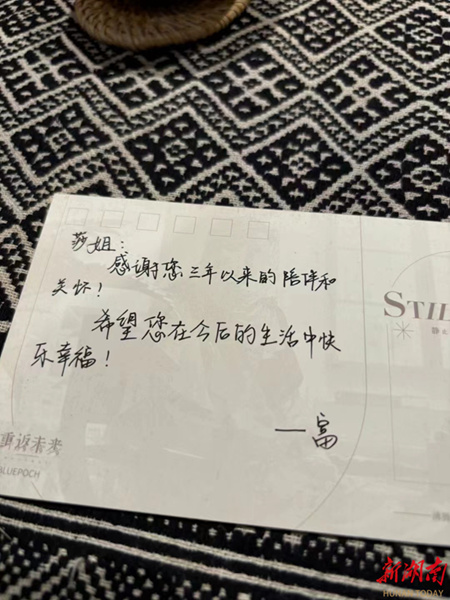 莎姐:
感谢您三年以来的陪伴和
关怀!
希望您在今后的生活中快
乐幸福!
——富
重返未来
BLUEPOCH
STIL
新湖南
HUNAN TODAY